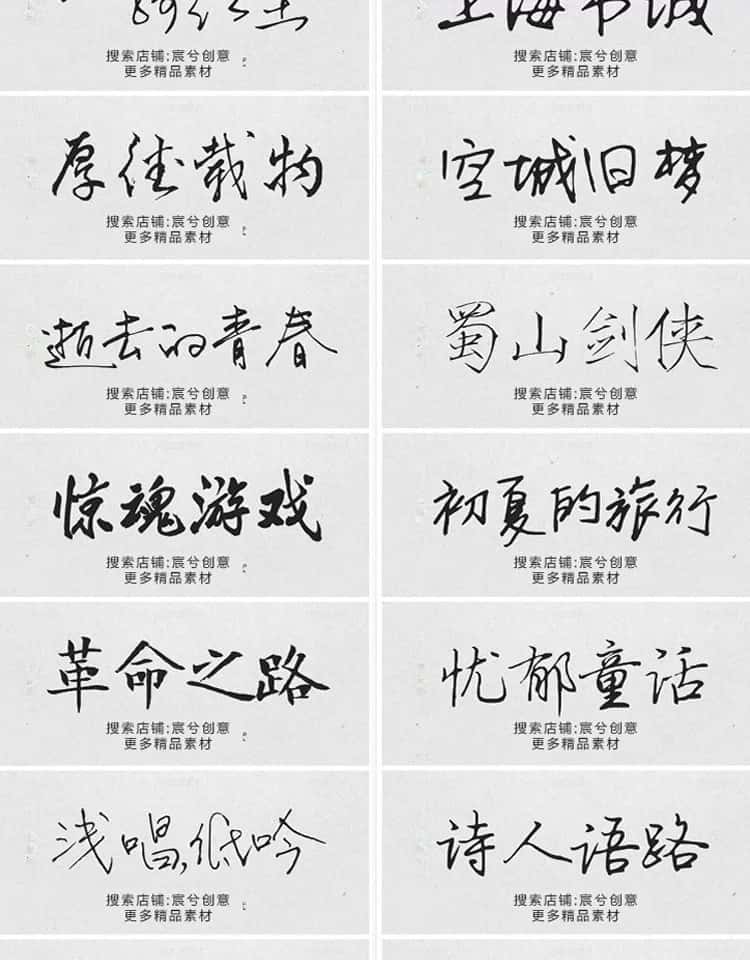 上海书城
搜索店铺:宸兮创意
更多精品素材
搜索店铺:宸兮创意
更多精品素材
厚德载物
空城旧梦
搜索店铺:宸兮创意
更多精品素材
搜索店铺:宸兮创意
更多精品素材
逝去的青春
蜀山剑侠
搜索店铺:宸兮创意
更多精品素材
搜索店铺:宸兮创意
更多精品素材
惊魂游戏
初夏的旅行
搜索店铺:宸兮创意
更多精品素材
搜索店铺:宸兮创意
更多精品素材
革命之路
忧郁童话
搜索店铺:宸兮创意
更多精品素材
搜索店铺:宸兮创意
更多精品素材
浅唱低吟
诗人语路
搜索店铺:宸兮创意
更多精品素材
搜索店铺:宸兮创意
更多精品素材